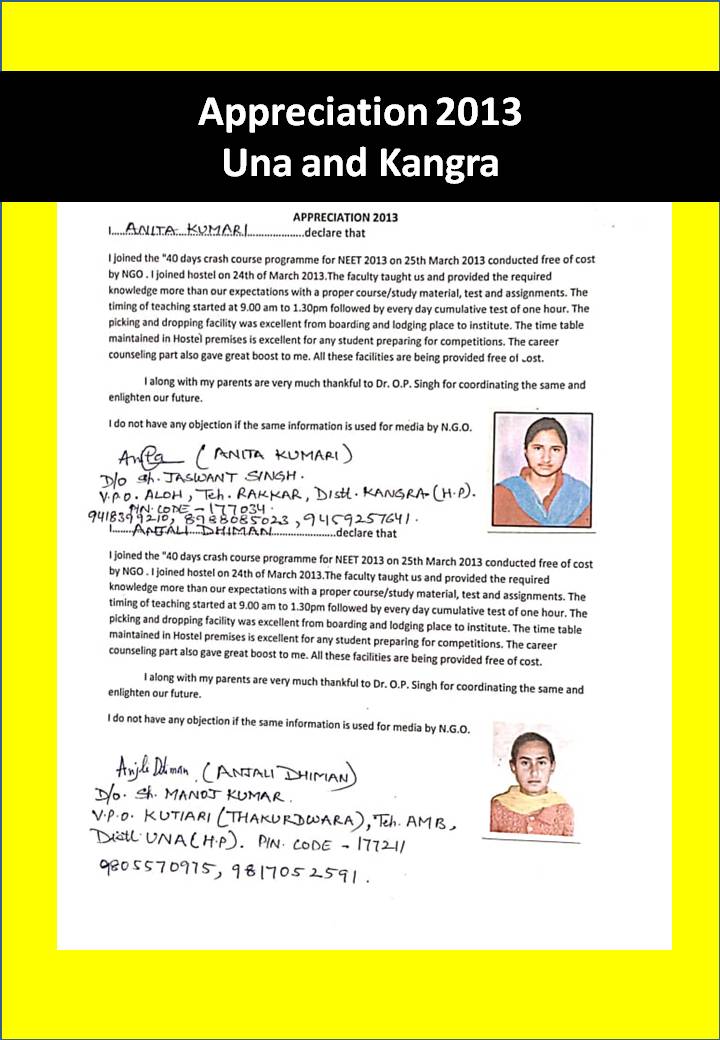 Appreciation 2013
Una and Kangra
APPRECIATION 2013
I.....ANITA KUMARI.....................declare that
I joined the "40 days crash course programme for NEET 2013 on 25th March 2013 conducted free of cost
by NGO . I joined hostel on 24th of March 2013.The faculty taught us and provided the required
knowledge more than our expectations with a proper course/study material, test and assignments. The
timing of teaching started at 9.00 am to 1.30pm followed by every day cumulative test of one hour. The
picking and dropping facility was excellent from boarding and lodging place to institute. The time table
maintained in Hostel premises is excellent for any student preparing for competitions. The career
counseling part also gave great boost to me. All these facilities are being provided free of cost.
I along with my parents are very much thankful to Dr. O.P. Singh for coordinating the same and
enlighten our future.
I do not have any objection if the same information is used for media by N.G.O.
Anita (ANITA KUMARI)
D/o Sh. JASWANT SINGH.
V.P.O. ALOH, Teh. RAKKAR, Distt. KANGRA-(H.P).
PIN. CODE - 177034.
9418399210, 8988085023, 9459257641.
I.....ANJALI DHIMAN.....................declare that
I joined the "40 days crash course programme for NEET 2013 on 25th March 2013 conducted free of cost
by NGO . I joined hostel on 24th of March 2013.The faculty taught us and provided the required
knowledge more than our expectations with a proper course/study material, test and assignments. The
timing of teaching started at 9.00 am to 1.30pm followed by every day cumulative test of one hour. The
picking and dropping facility was excellent from boarding and lodging place to institute. The time table
maintained in Hostel premises is excellent for any student preparing for competitions. The career
counseling part also gave great boost to me. All these facilities are being provided free of cost.
I along with my parents are very much thankful to Dr. O.P. Singh for coordinating the same and
enlighten our future.
I do not have any objection if the same information is used for media by N.G.O.
Anjli Dhiman. (ANJALI DHIMAN)
D/o. Sh. MANOJ KUMAR.
V.P.O. KUTIARI (THAKURDWARA), Teh. AMB,
Distt. UNA (H.P). PIN. CODE - 177211
9805570975, 9817052591.